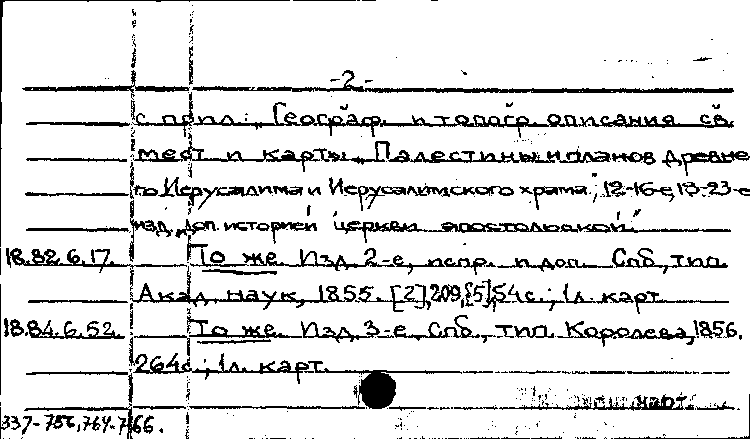 -2-
с прил.: „Географ. и топогр. описания св.
мест и карты „Палестины и планов древне
го Иерусалима и Иерусалимского храма“; 12-16-е, 18-23-е
изд. „доп. историей церкви апостольской.“
18.82.6.17. То же. Изд. 2-е, испр. и доп. Спб., тип.
Акад. наук, 1855. [2], 209, [5], 54 с.; 1 л. карт.
18.84.6.52. То же. Изд. 3-е. Спб., тип. Королева, 1856.
264 с.; 1 л. карт.